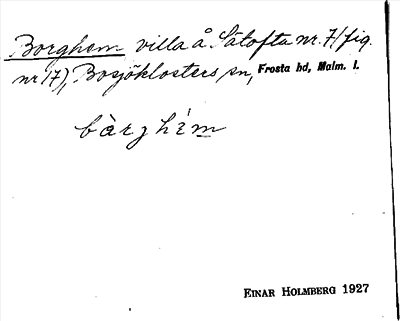 Borghem villa å Sätofta nr. 7 (fig.
nr 17), Bosjöklosters sn, Frosta hd, Malm. l.
bàrghém
EINAR HOLMBERG 1927